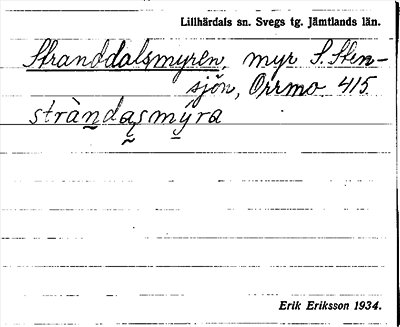 Lillhärdals sn. Svegs tg. Jämtlands län.
Stranddalsmyren, myr S. Sten-
sjön, Orrmo 415.
stràndasmýra
Erik Eriksson 1934.